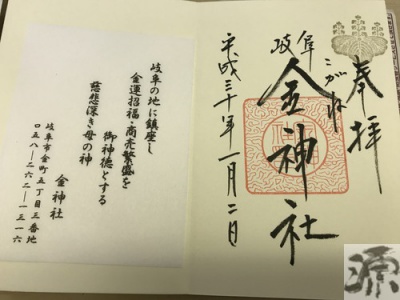 奉拝
こがね
岐阜
金神社
平成三十年一月二日
岐阜の地に鎮座し
金運招福・商売繁盛を
御神徳とする
慈悲深き母の神
金神社
岐阜市金町五丁目三番地
〇五八-二六二-一三一六
源